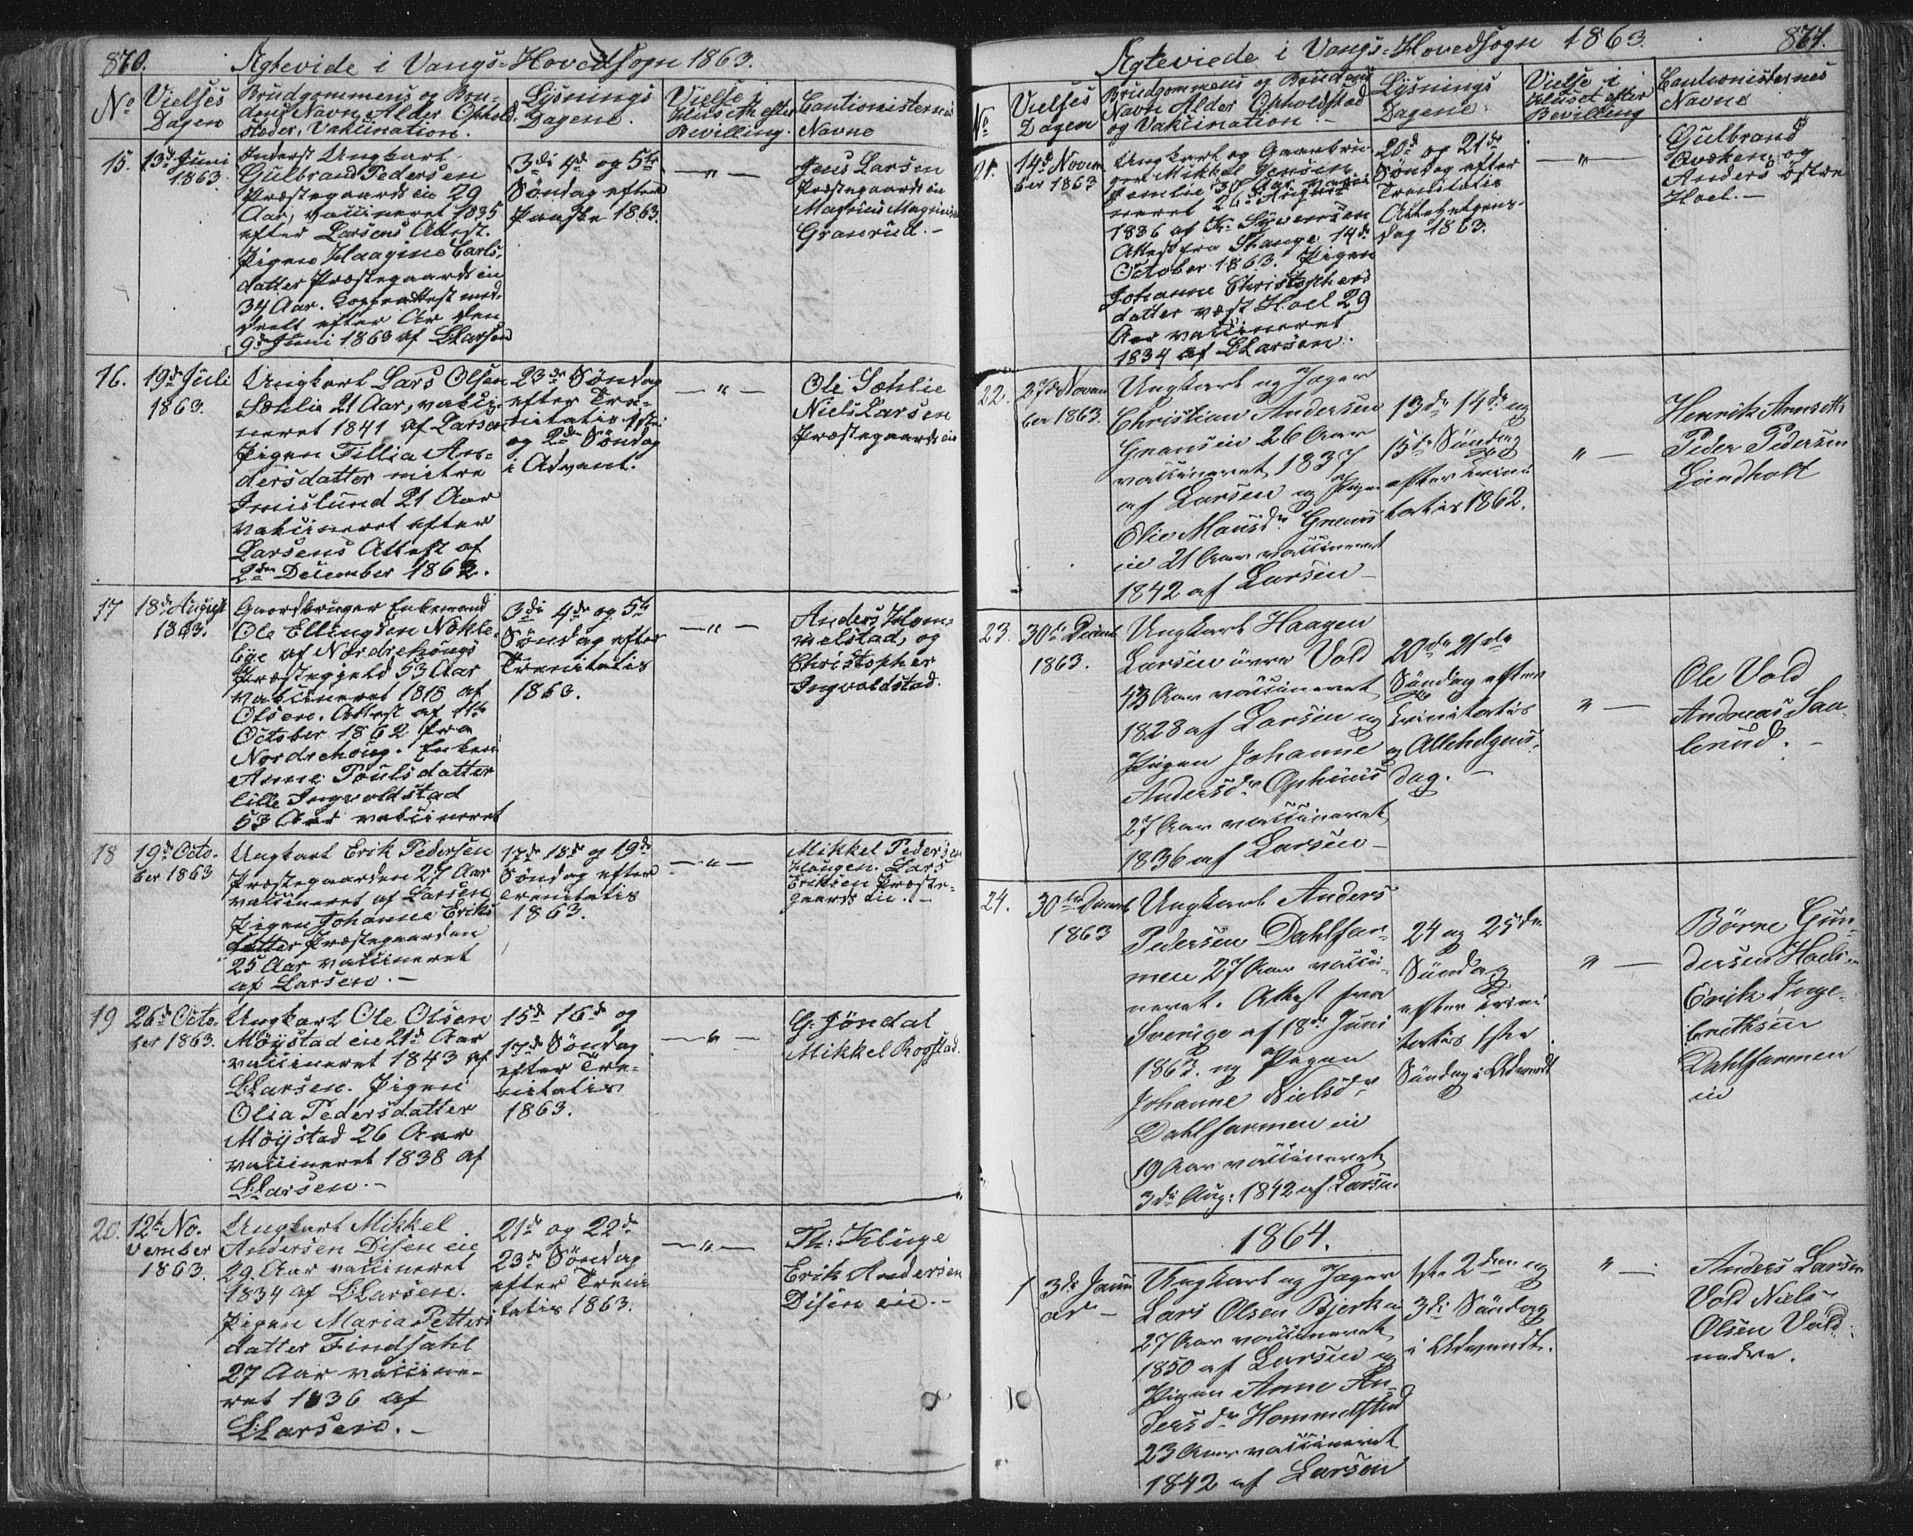 870.
Ægteviede i Vangs-Hovedsogn 1863.
No
Vielses
Dagen
Brudgommens og Bru-
dens Navn, Alder Ophold.
steder, Vakcination.
Lysnings
Dagene.
Vielse i
Huset efter
Bevilling.
Cautionisternes
Navne
15.
13de Juni
1863.
Inderst Ungkarl
Gulbrand Pedersen
Præstegaards eie 29
Aar, vaccineret 1835
efter Larsens Attest.
Pigen Haagine Carls-
datter Præstegaards eie
34 Aar. Koppeattest med-
deelt efter Ar den
9de Juni 1863 af L Larsen
3di 4de og 5te
Søndag efter
Paaske 1863.
— „ —
Jens Larsen
Præstegaards eie
Magnus Magnus
Granrud. —
16.
19de Juli
1863.
Ungkarl Lars Olsen
Sæhlie 21 Aar, vakci-
neret 1841 af Larsen
Pigen Tillia An-
dersdatter nitre
Imislund 21 Aar
vakcineret efter
Larsens Attest af
2den December 1862.
23de Søndag
efter Tre-
nitatis 1ste
og 2den Søndag
i Advent.
— „ —
Ole Sæhlie
Niels Larsen
Præstegaards eie
17
18de August
1863.
Gaardbruger Enkemand
Ole Ellingsen Nøkle-
bye af Nordrehougs
Præstegjeld 53 Aar
vakcineret 1818 af
Olsen. Attest af 11te
October 1862 fra
Nordrehoug. Enken
Anne Poulsdatter
lille Ingvoldstad
53 Aar vakcineret
3di 4de og 5te
Søndag efter
Trenitatis
1863.
— „ —
Anders Hom-
melstad, og
Christopher
Ingvoldstad.
18
19de Octo-
ber 1863
Ungkarl Erik Pedersen
Præstegaarden 27 Aar
vaccineret af Larsen
Pigen Johanne Eriks
datter Præstegaarden
25 Aar vaccineret
af Larsen. —
17de 18de og 19de
Søndag efter
Trenitatis
1863.
— „ —
Mikkel Pedersen
Haugen. Lars
Eriksen Præste-
gaards eie. —
19
26de Octo-
ber 1863.
Ungkarl Ole Olsen
Møystad eie 21de Aar
vaccineret 1843 af
L Larsen. Pigen
Olia Pedersdatter
Møystad 26 Aar
vaccineret 1838 af
L Larsen. —
15de 16de og
17de Søndag
efter Tre-
nitatis
1863.
— „ —
G: Jøndal
Mikkel Rogstad.
20.
12te No-
vember
1863.
Ungkarl Mikkel
Andersen Disen eie
29. Aar vaccineret
1834 af L Larsen.
Pigen Maria Petters
datter Findsahl
27 Aar vaccine-
ret 1836 af
L Larsen. —
21de og 22de
23de Søndag
efter Treni
tatis 1863.
— „ —
Th: Kluge
Erik Andersen
Disen eie. —
Ægteviede i Vangs-Hovedsogn 1863.
871.
No
Vielses
Dagen
Brudgommens og Brudens
Navn Alder Opholdsted
og Vakcination. —
Lysnings
Dagene.
Vielse i
Huset efter
Bevilling
Cautionisternes
Navne
21.
14de Novem
ber 1863
Ungkarl og Gaardbru-
ger Mikkel Jensen
30 Aar vacci
neret 26de August
1836 af
Attest fra Stange 14de
October 1863. Pigen
Johanne Christophers
datter væst Hoel 29
Aar vaccineret
1834 af L Larsen.
20de og 21de
Søndag efter
Trenitatis
Allehelgens-
dag 1863.
— „ —
Gulbrand
og
Anders østre
Hoel. —
22.
27de Novem
ber 1863.
Ungkarl og Jæger
Christian Andersen
Granseie 26 Aar
vaccineret 1837
af Larsen og Pigen
Olia Mausdr Grans
eie 21 Aar vaccineret
1842 af Larsen —
13de 14de og
15de Søndag
efter Trini
tatis 1862.
„ —
Henrik Arneseth
Peder Pedersen
Lundholt
23.
30de Decemb
1863.
Ungkarl Haagen
Larsen øvre Vold
43 Aar vaccineret
1828 af Larsen og
Pigen Johanne
Andersdr Ophuus
27 Aar vaccineret
1836 af Larsen —
20de 21de
Søndag efter
Trinitatis
og Allehelgens-
dag. —
„ —
Ole Vold
Andreas Saa-
lerud. —
24.
30te Decemb
1863
Ungkarl Anders
Pedersen Dahlfar-
men 27 Aar vacci-
neret. Attest fra
Sverige af 18de Juni
1863. og Pigen
Johanne Nielsdr
Dahlfarmen eie
19 Aar vaccineret
3die Aug: 1842 af Larsen
24 og 25de
Søndag
efter Trini
tatis 1ste
Søndag i Advendt
„ —
Børre Gun-
dersen Hoels-
Erik Inge-
brethsen
Dahlfarmen
eie
1864.
1
3die Janu
ar —
Ungkarl og Jæger
Lars Olsen Bjerke
27 Aar vaccineret
1850 af Larsen og
Pigen Anne An-
dersdr Hommelstad
23 Aar vaccineret
1842 af Larsen
1ste 2den og
3die Søndag
i Advendt.
„ —
Anders Larsen
Vold Niels
Olsen Vold
nedre.